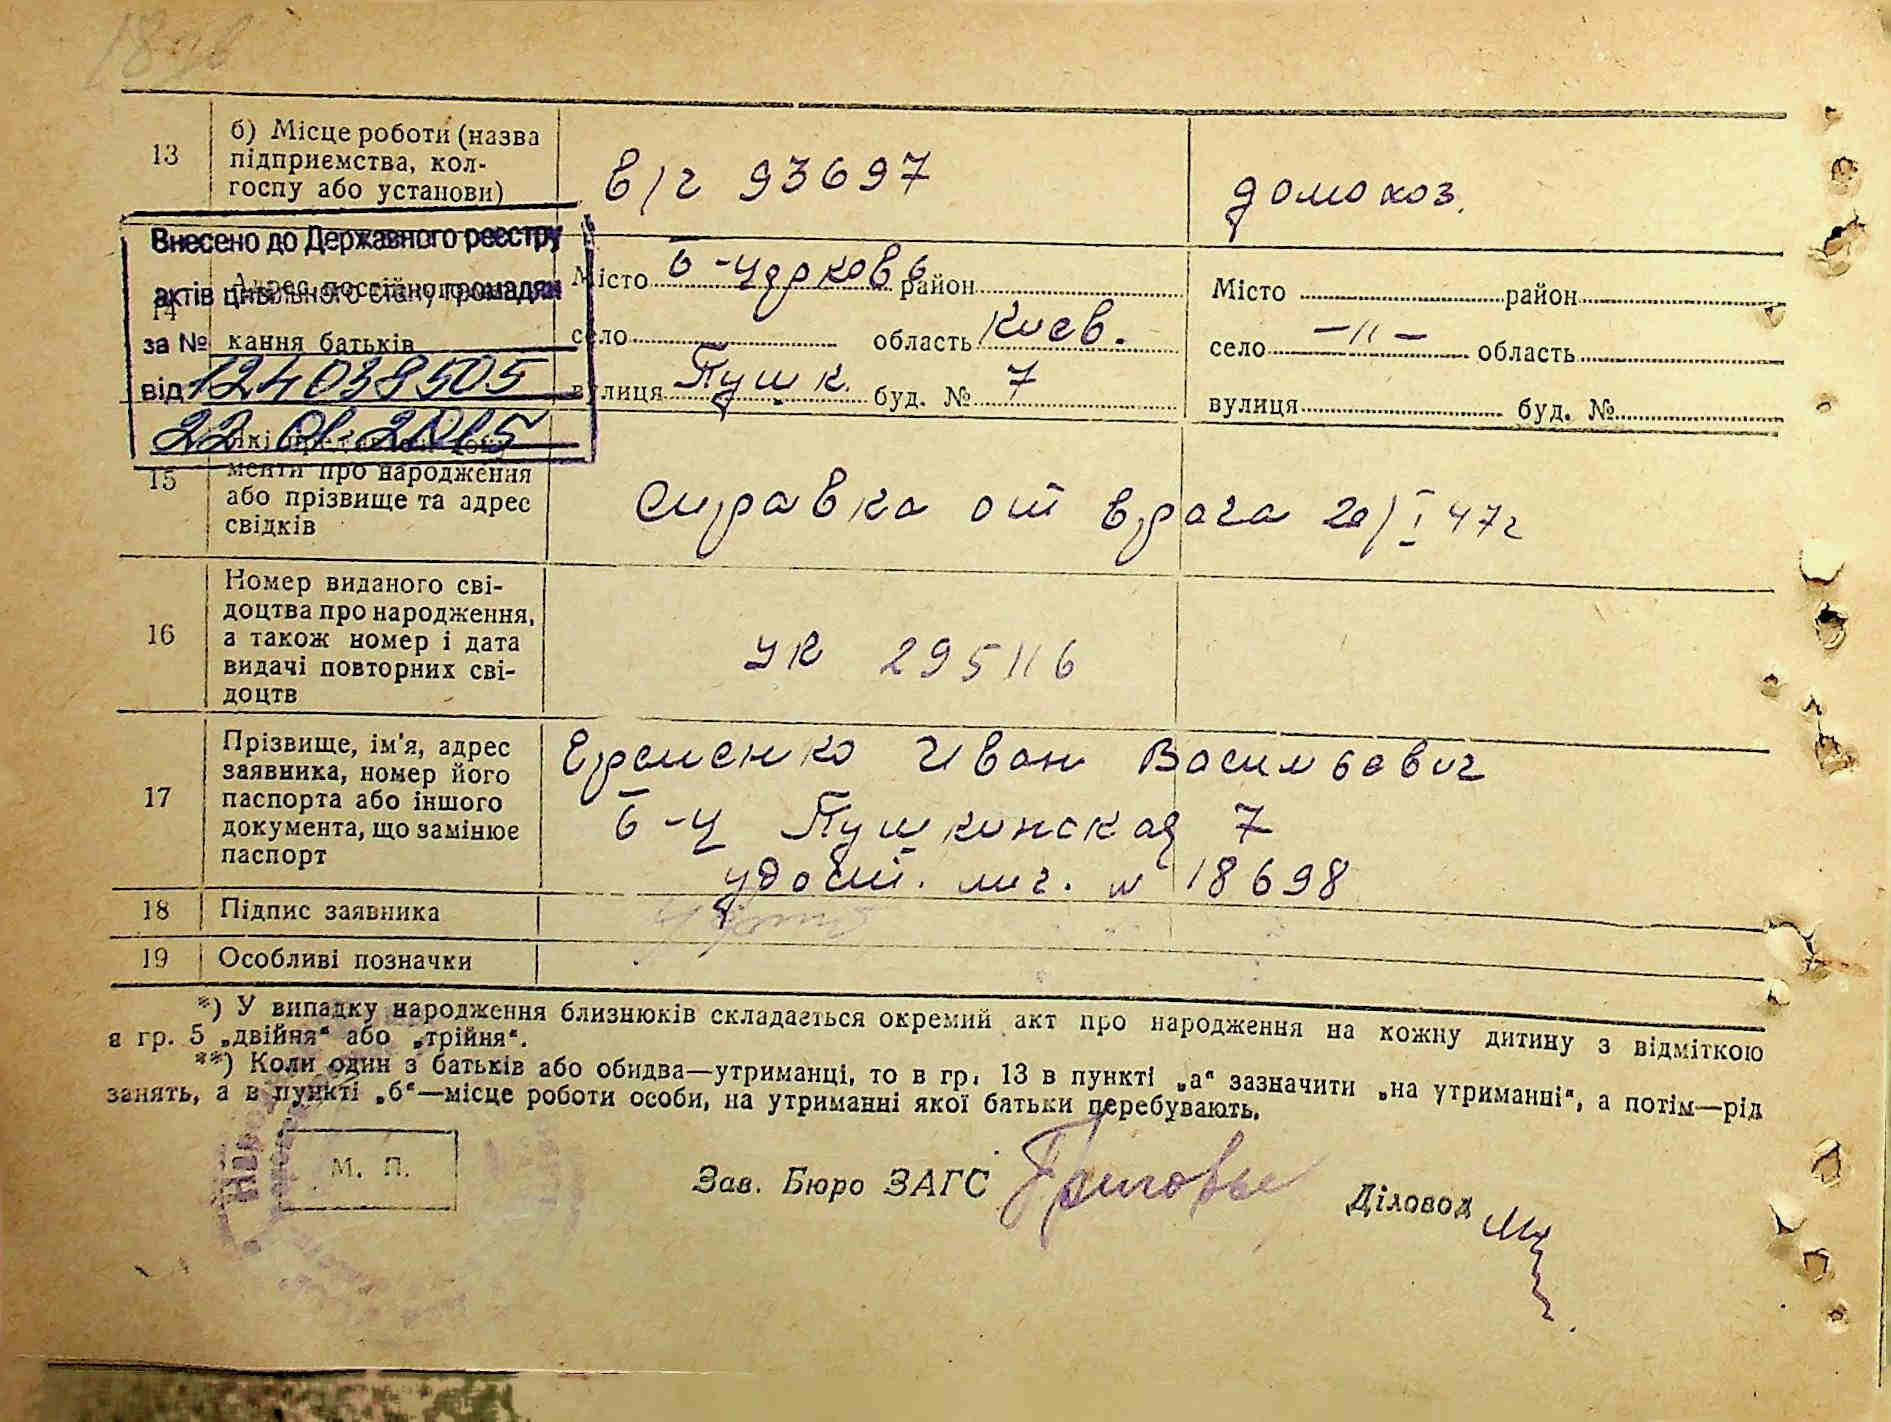 13
б) Місце роботи (назва
підприємства, кол-
госпу або установи)
в/г 93697
домохоз.
Внесено до Державного реєстру
актів цивільного стану громадян
за №
від 124038505
22 01 2015
14
Адрес постійного
кання батьків
Місто Б-Церковь район
село область Киев.
вулиця Пушк. буд. № 7
Місто район
село —"— область
вулиця буд. №
15
менти про народження
або прізвище та адрес
свідків
справка от врача 20/I 47г
16
Номер виданого сві-
доцтва про народження,
а також номер і дата
видачі повторних сві-
доцтв
УК 295116
17
Прізвище, ім'я, адрес
заявника, номер його
паспорта або іншого
документа, що замінює
паспорт
Еременко Иван Васильевич
Б-Ц Пушкинская 7
удост. лич. № 18698
18
Підпис заявника
19
Особливі позначки
*) У випадку народження близнюків складається окремий акт про народження на кожну дитину з відміткою
в гр. 5 „двійня“ або „трійня“.
**) Коли один з батьків або обидва—утриманці, то в гр. 13 в пункті „а“ зазначити „на утриманні“, а потім—рід
занять, а в пункті „б“—місце роботи особи, на утриманні якої батьки перебувають.
М. П.
Зав. Бюро ЗАГС
Діловод